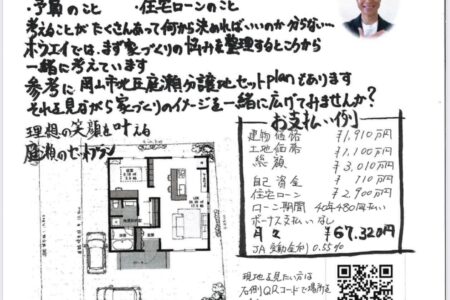 ・予算のこと ・住宅ローンのこと
考えることがたくさんあって何から決めればいいのか分らない…
ホウエイでは、まず家づくりの悩みを整理するところから
一緒に考えています
参考に岡山市北区庭瀬分譲地セットplanもあります
それを見ながら家づくりのイメージを一緒に広げてみませんか?
理想の笑顔を叶える
庭瀬のセットプラン
お支払い例
建物価格 ¥1,910万円
土地価格 ¥1,100万円
総額 ¥3,010万円
自己資金 ¥110万円
住宅ローン ¥2,900万円
ローン期間 40年480回払い
ボーナス支払い なし
月々 ¥67,320円
JA変動金利 0.55%
現地を見たい方は
右側QRコードで場所を